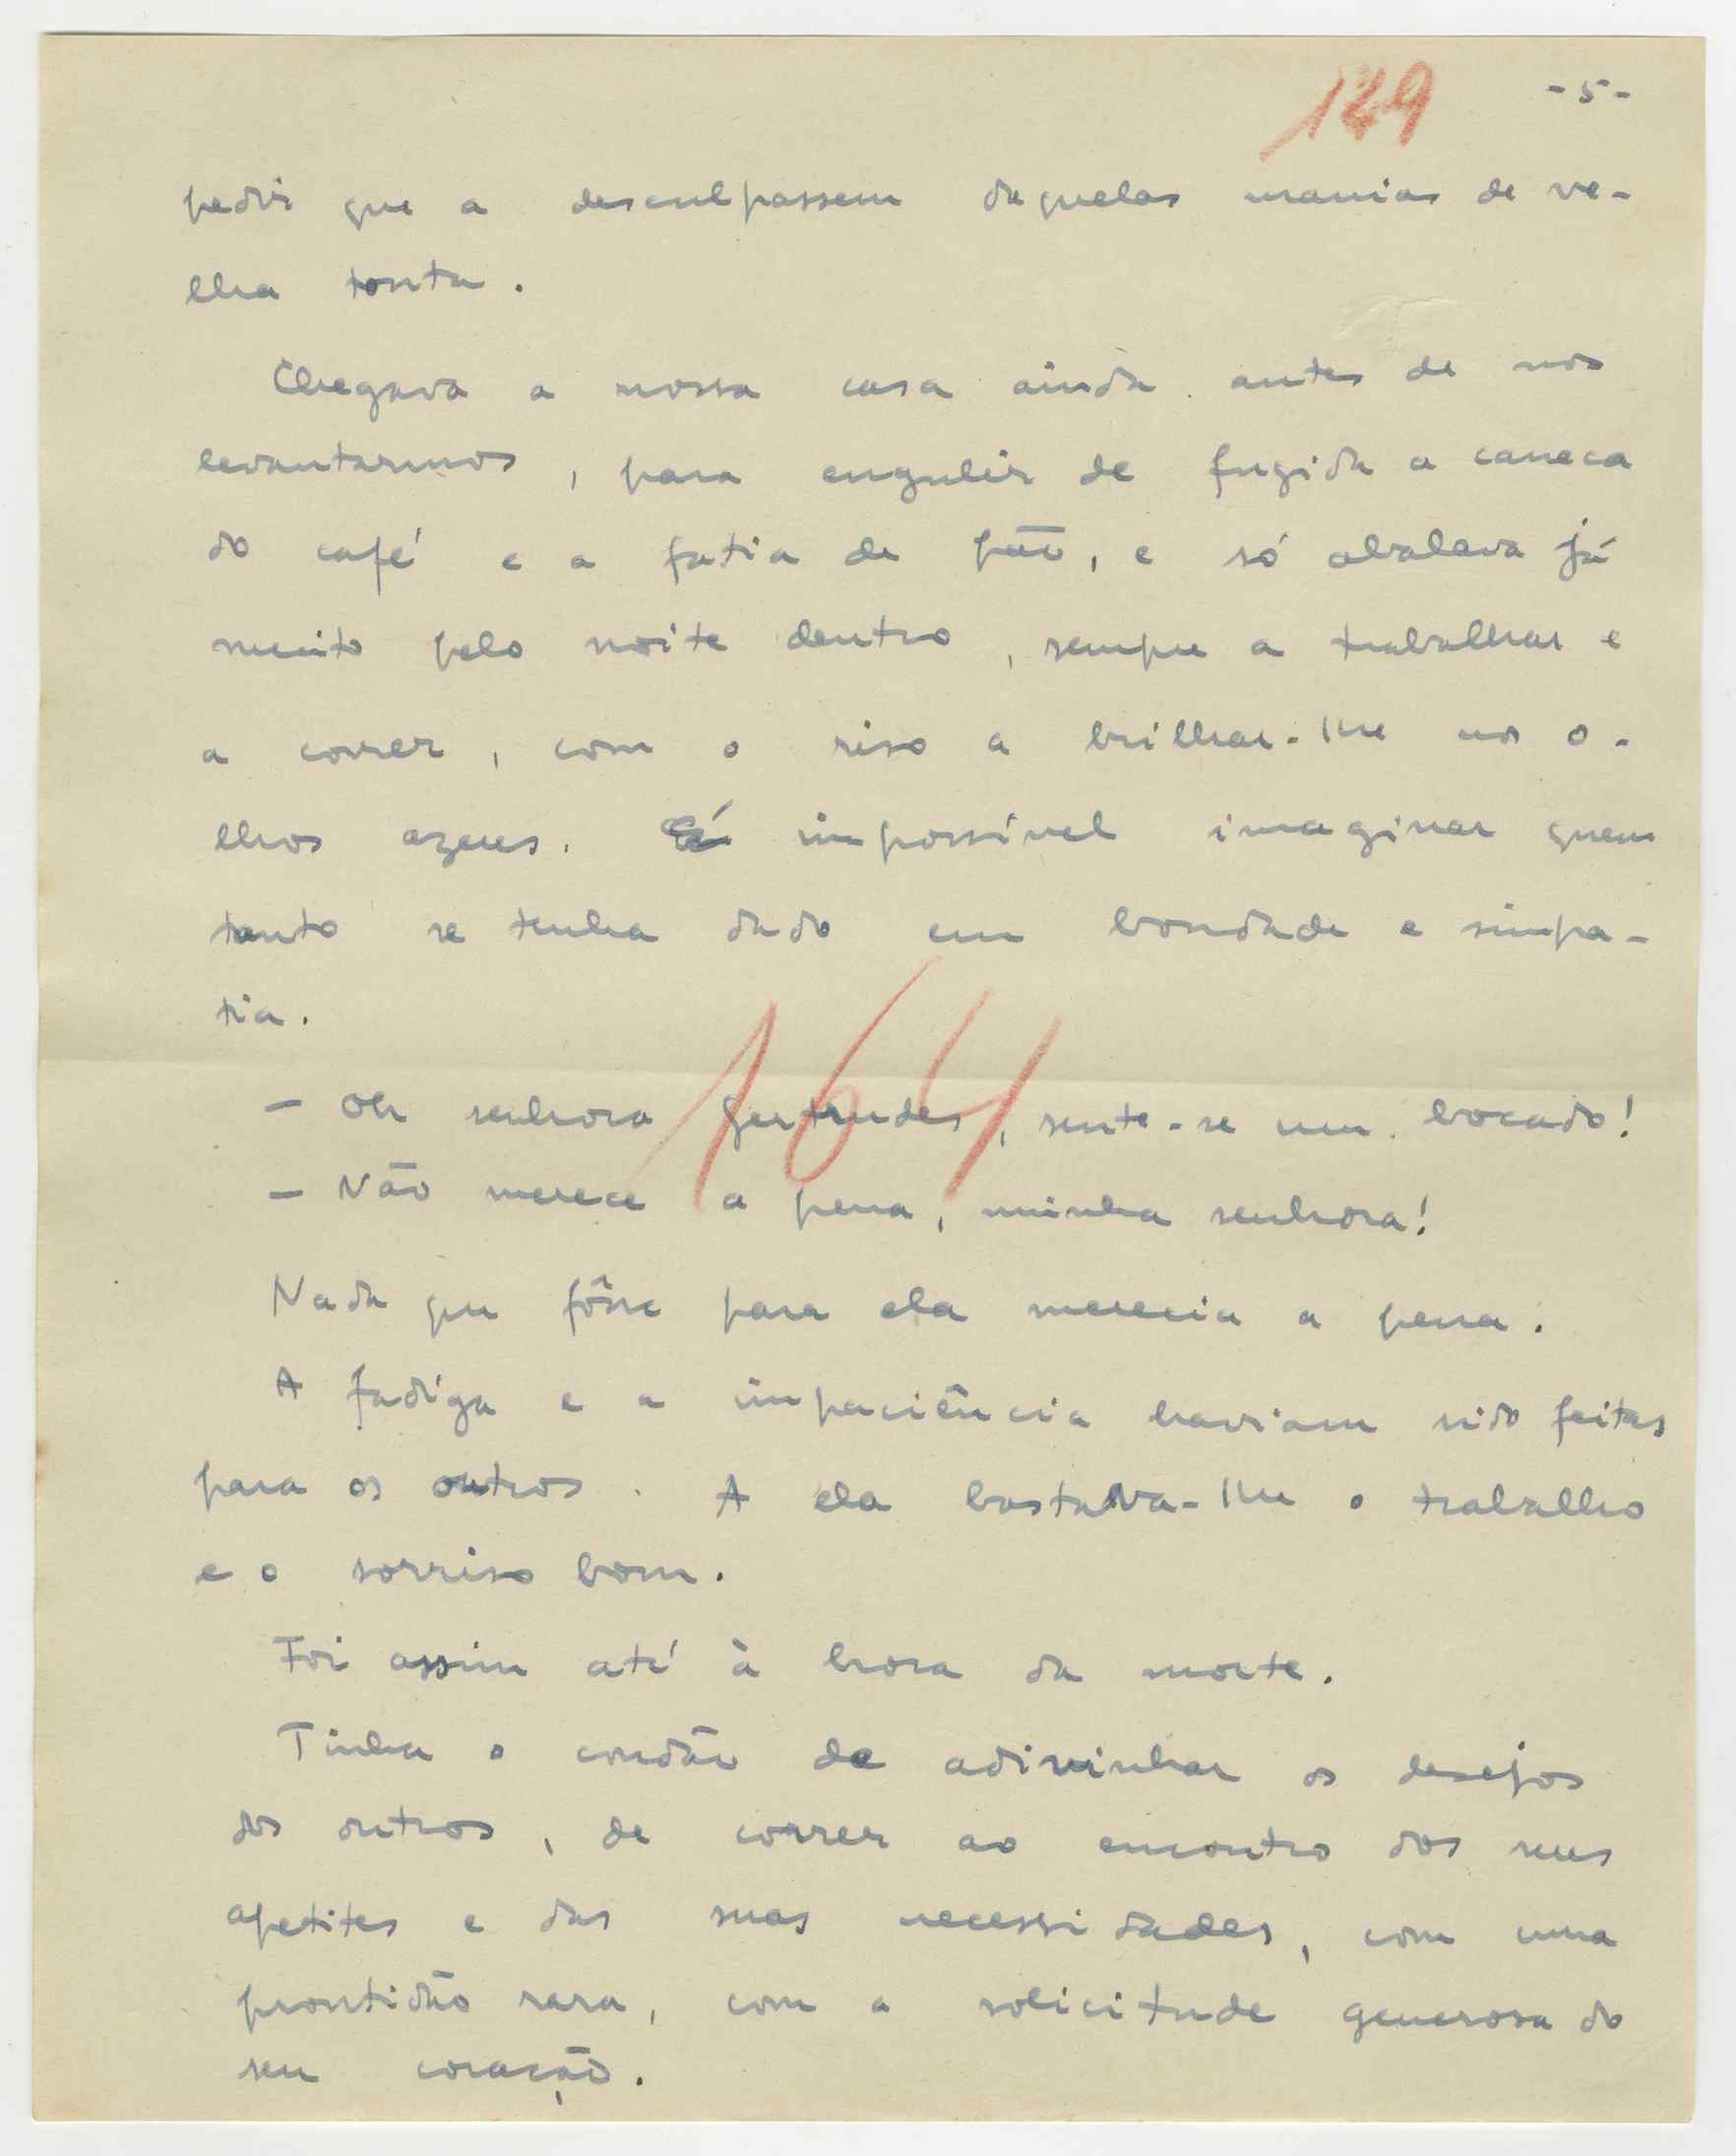 129 -5-
pedir que a desculpassem daquelas manias de ve-
lha tonta.
Chegava a nossa casa ainda antes de nos
levantarmos, para engulir de fugida a caneca
do café e a fatia de pão, e só abalava já
muito pela noite dentro, sempre a trabalhar e
a correr, com o riso a brilhar-lhe nos o-
lhos azues. É impossível imaginar quem
tanto se tenha dado em bondade e simpa-
tia.
164
- Oh senhora Gertrudes, sente-se um bocado!
- Não merece a pena, minha senhora!
Nada que fôsse para ela merecia a pena.
A fadiga e a impaciência haviam sido feitas
para os outros. A ela bastava-lhe o trabalho
e o sorriso bom.
Foi assim até à hora da morte.
Tinha o condão de adivinhar os desejos
dos outros, de correr ao encontro dos seus
apetites e das suas necessidades, com uma
prontidão rara, com a solicitude generosa do
seu coração.